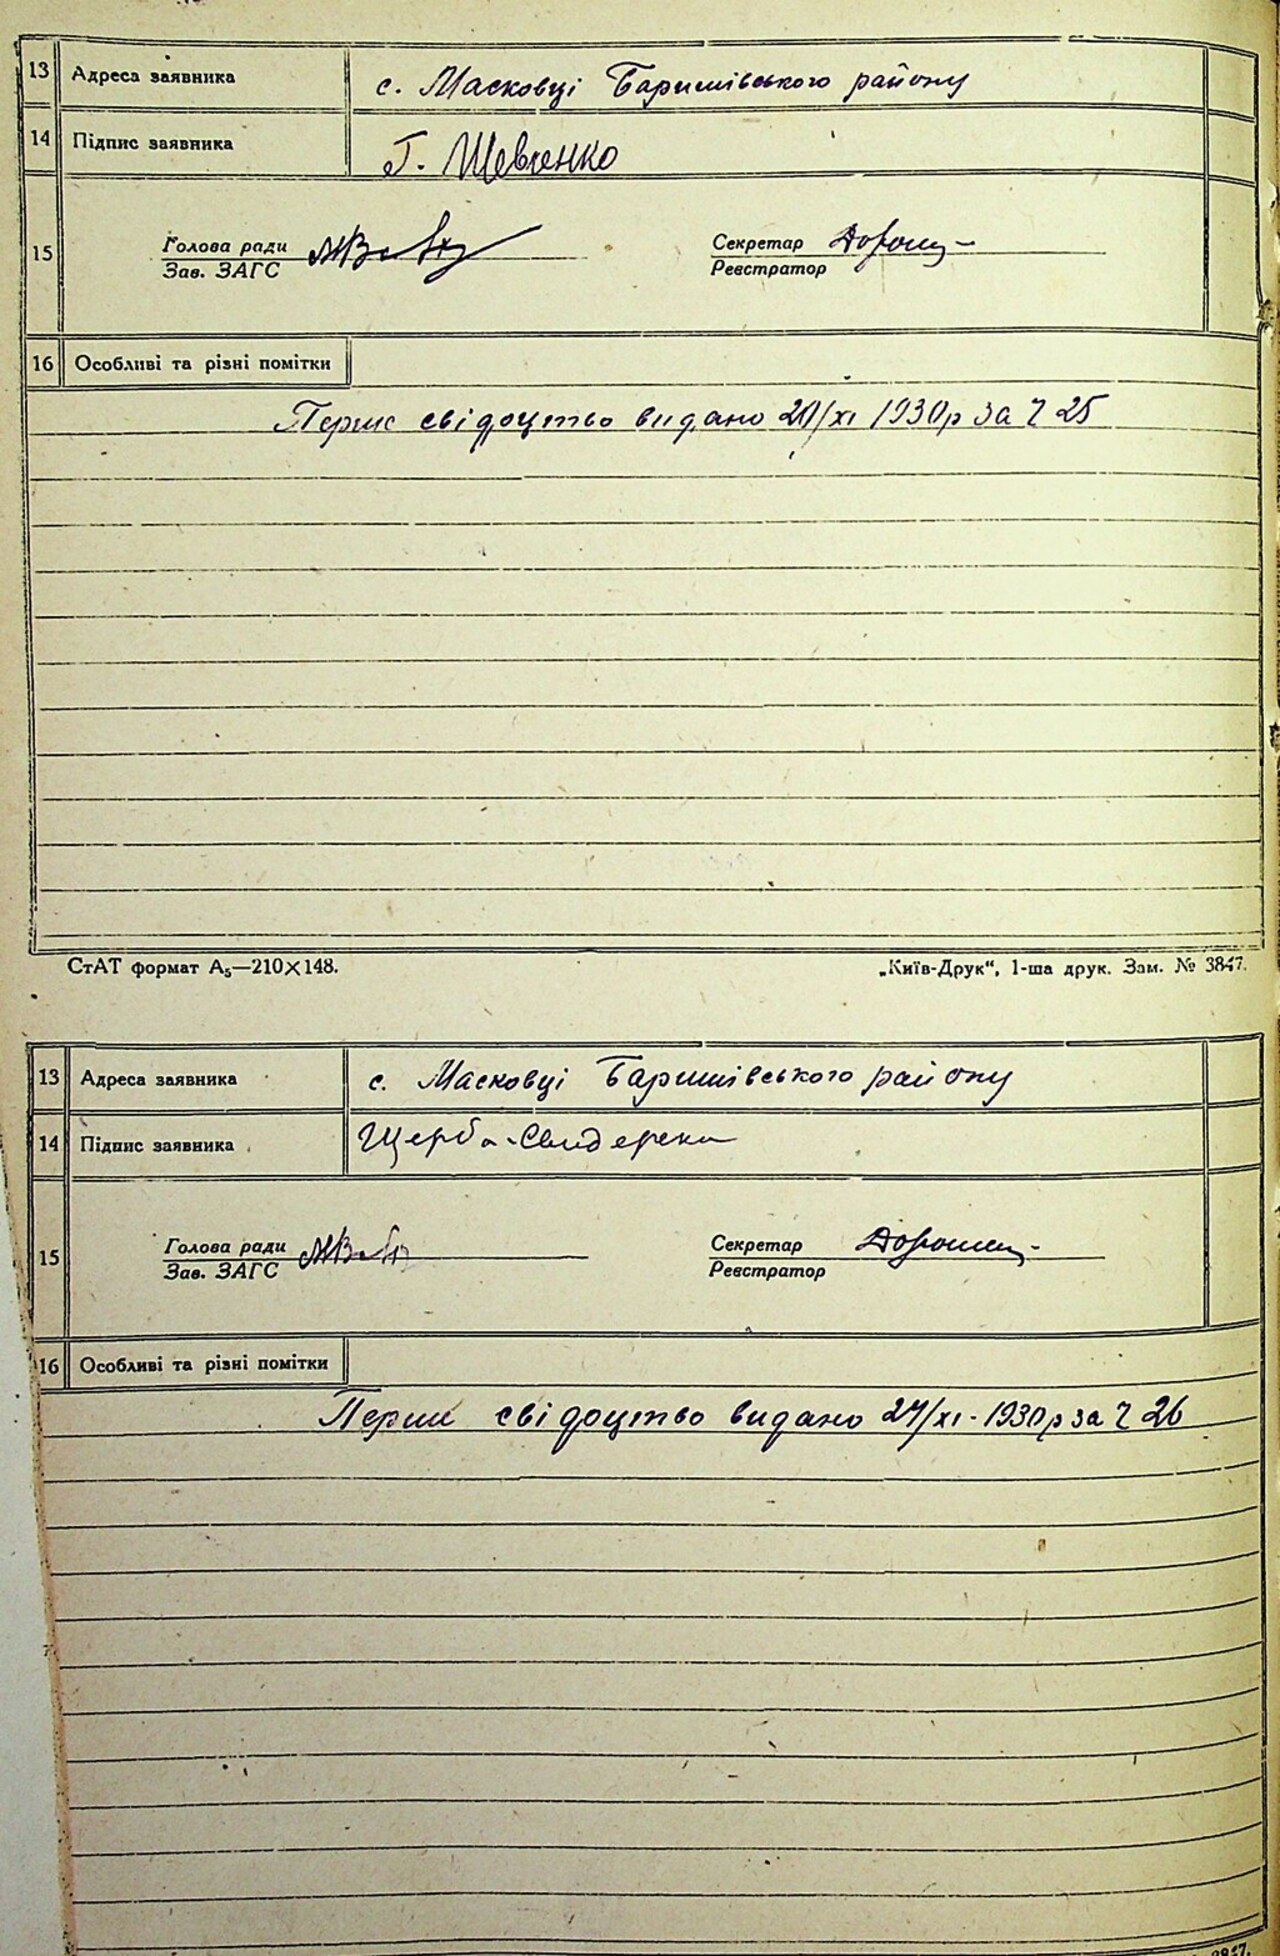 13 Адреса заявника с. Масковці Баришівського району
14 Підпис заявника Г. Шевченко
15 Голова ради Секретар
Зав. ЗАГС Реєстратор
16 Особливі та різні помітки
Перше свідоцтво видано /XI 1930р за Ч 25
СтАТ формат А5—210×148. „Київ-Друк“, 1-ша друк. Зам. № 3847.
13 Адреса заявника с. Масковці Баришівського району
14 Підпис заявника Щерба
15 Голова ради Секретар
Зав. ЗАГС Реєстратор
16 Особливі та різні помітки
Перше свідоцтво видано 27/XI - 1930р за Ч 26